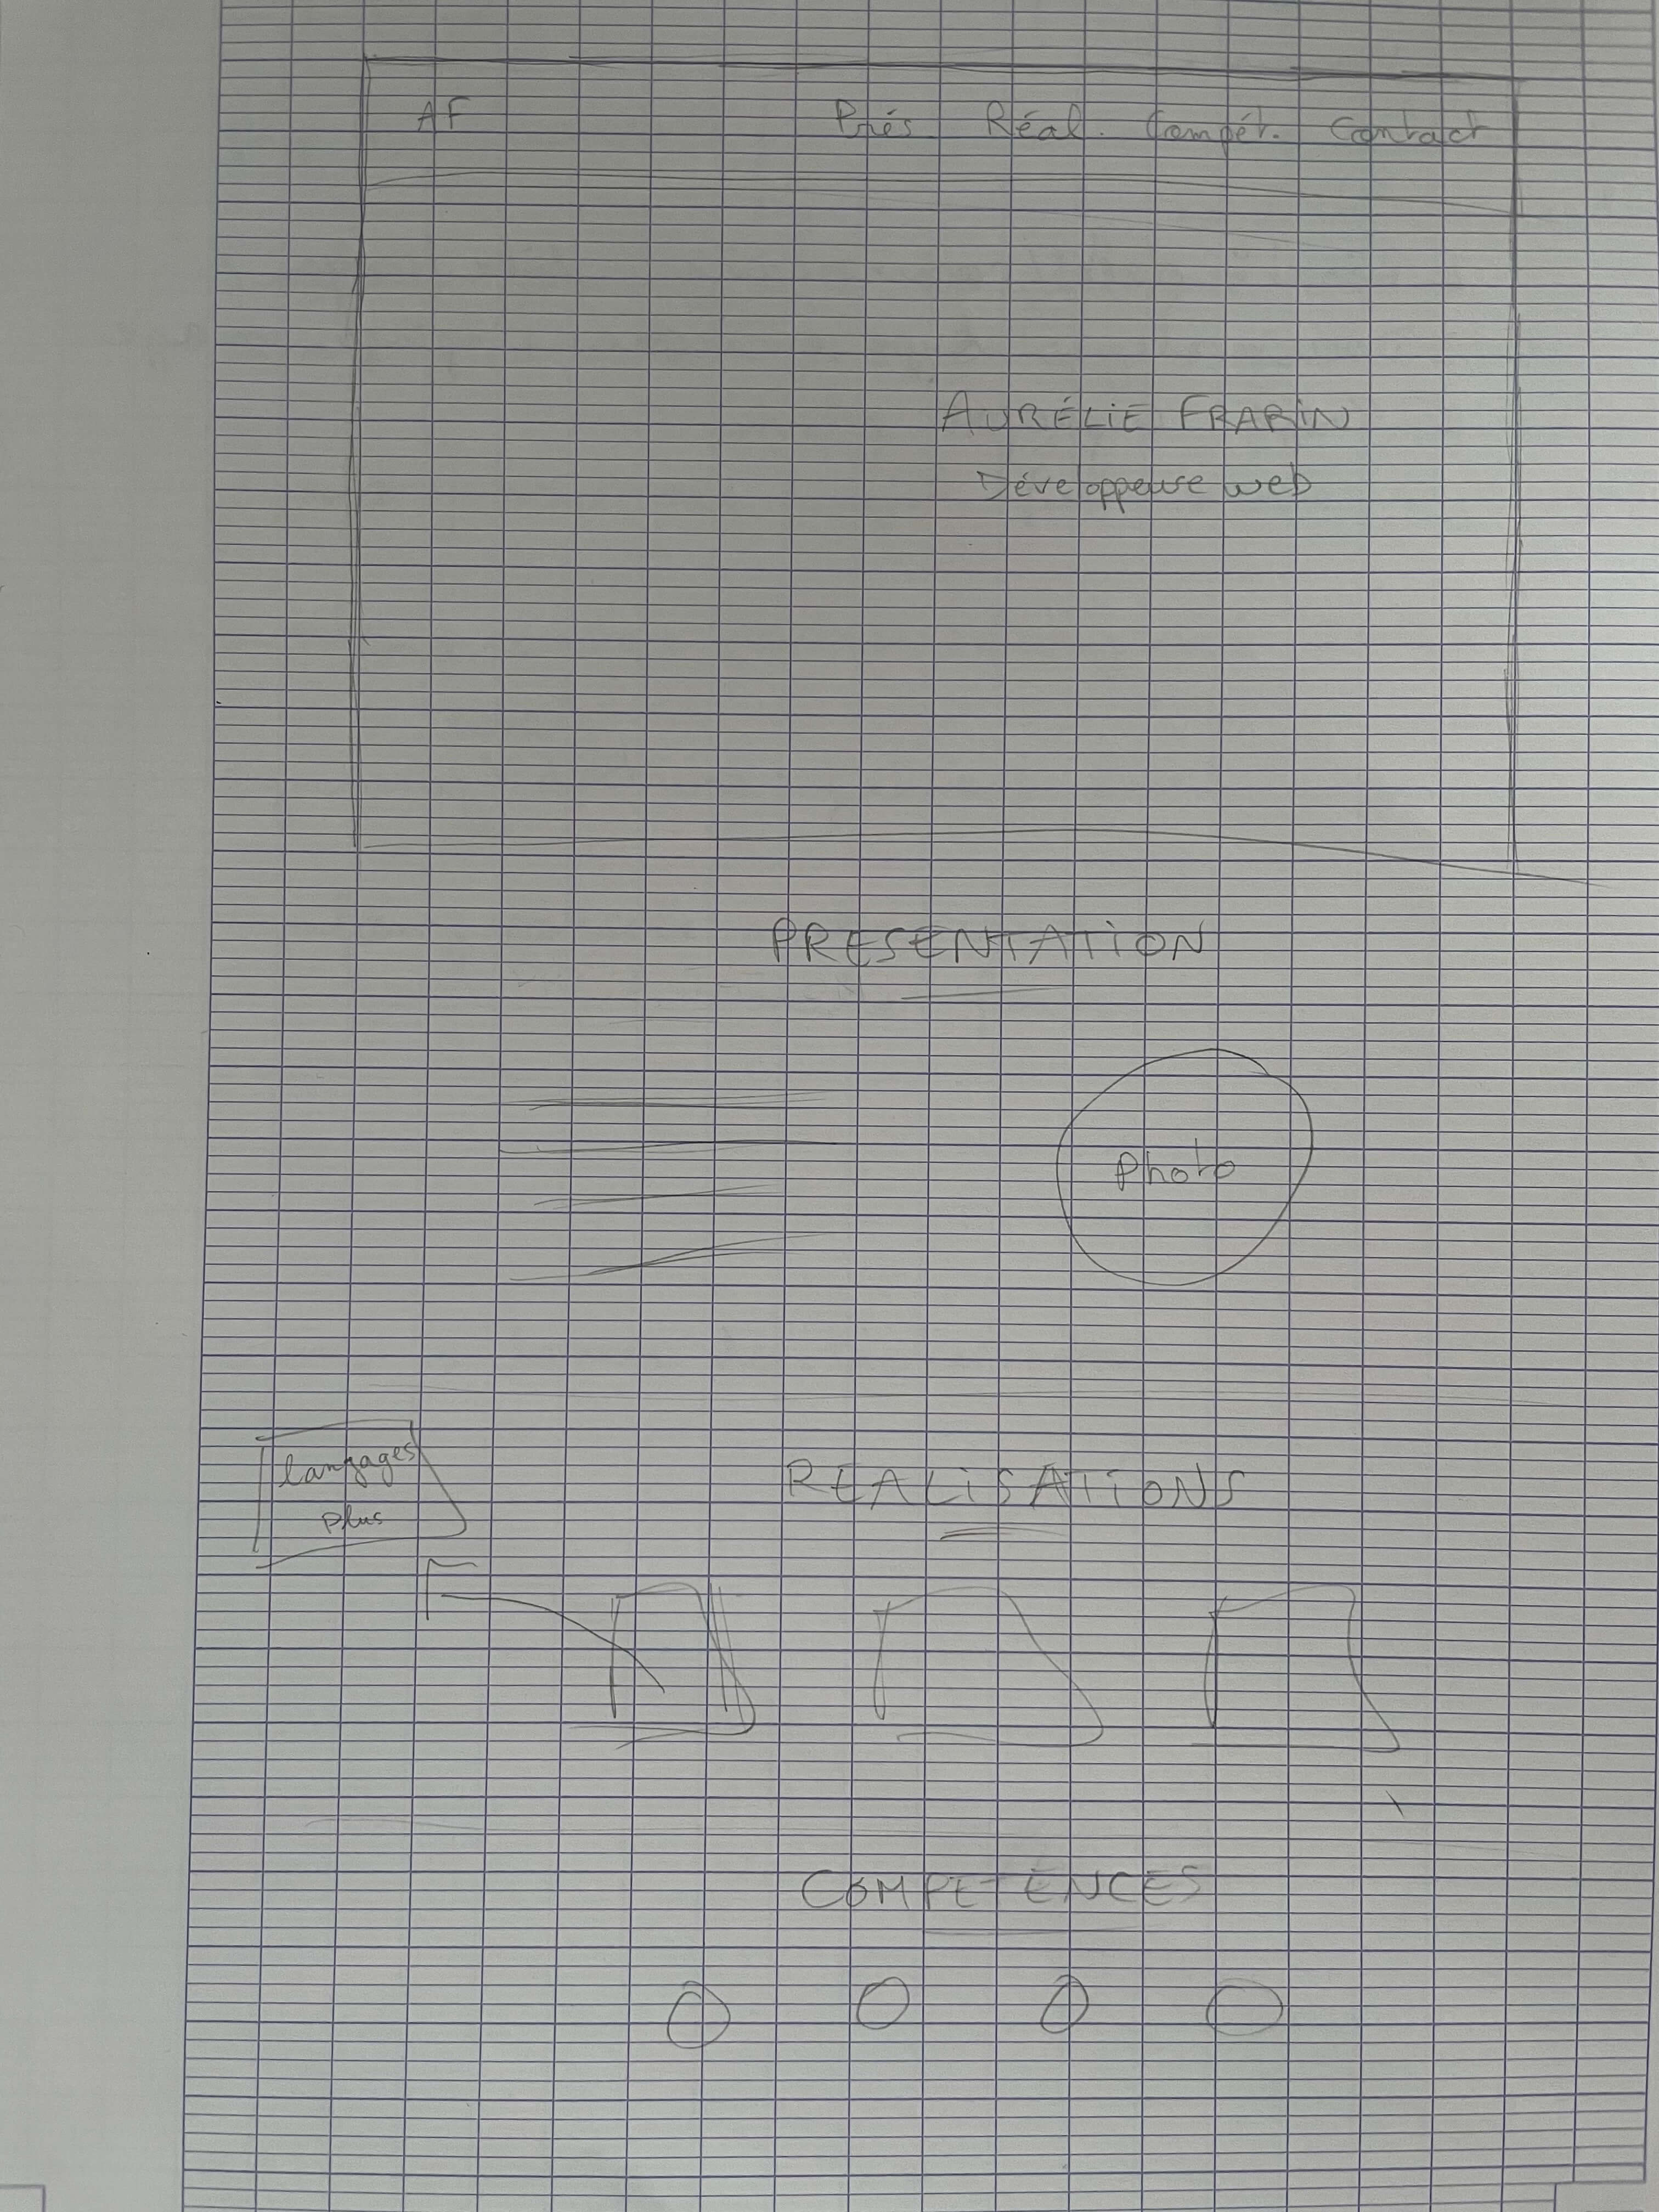 AF Prés Réal. Compét. Contact
AURÉLIE FRARIN
Développeuse web
PRESENTATION
Photo
langages
plus
REALISATIONS
COMPETENCES